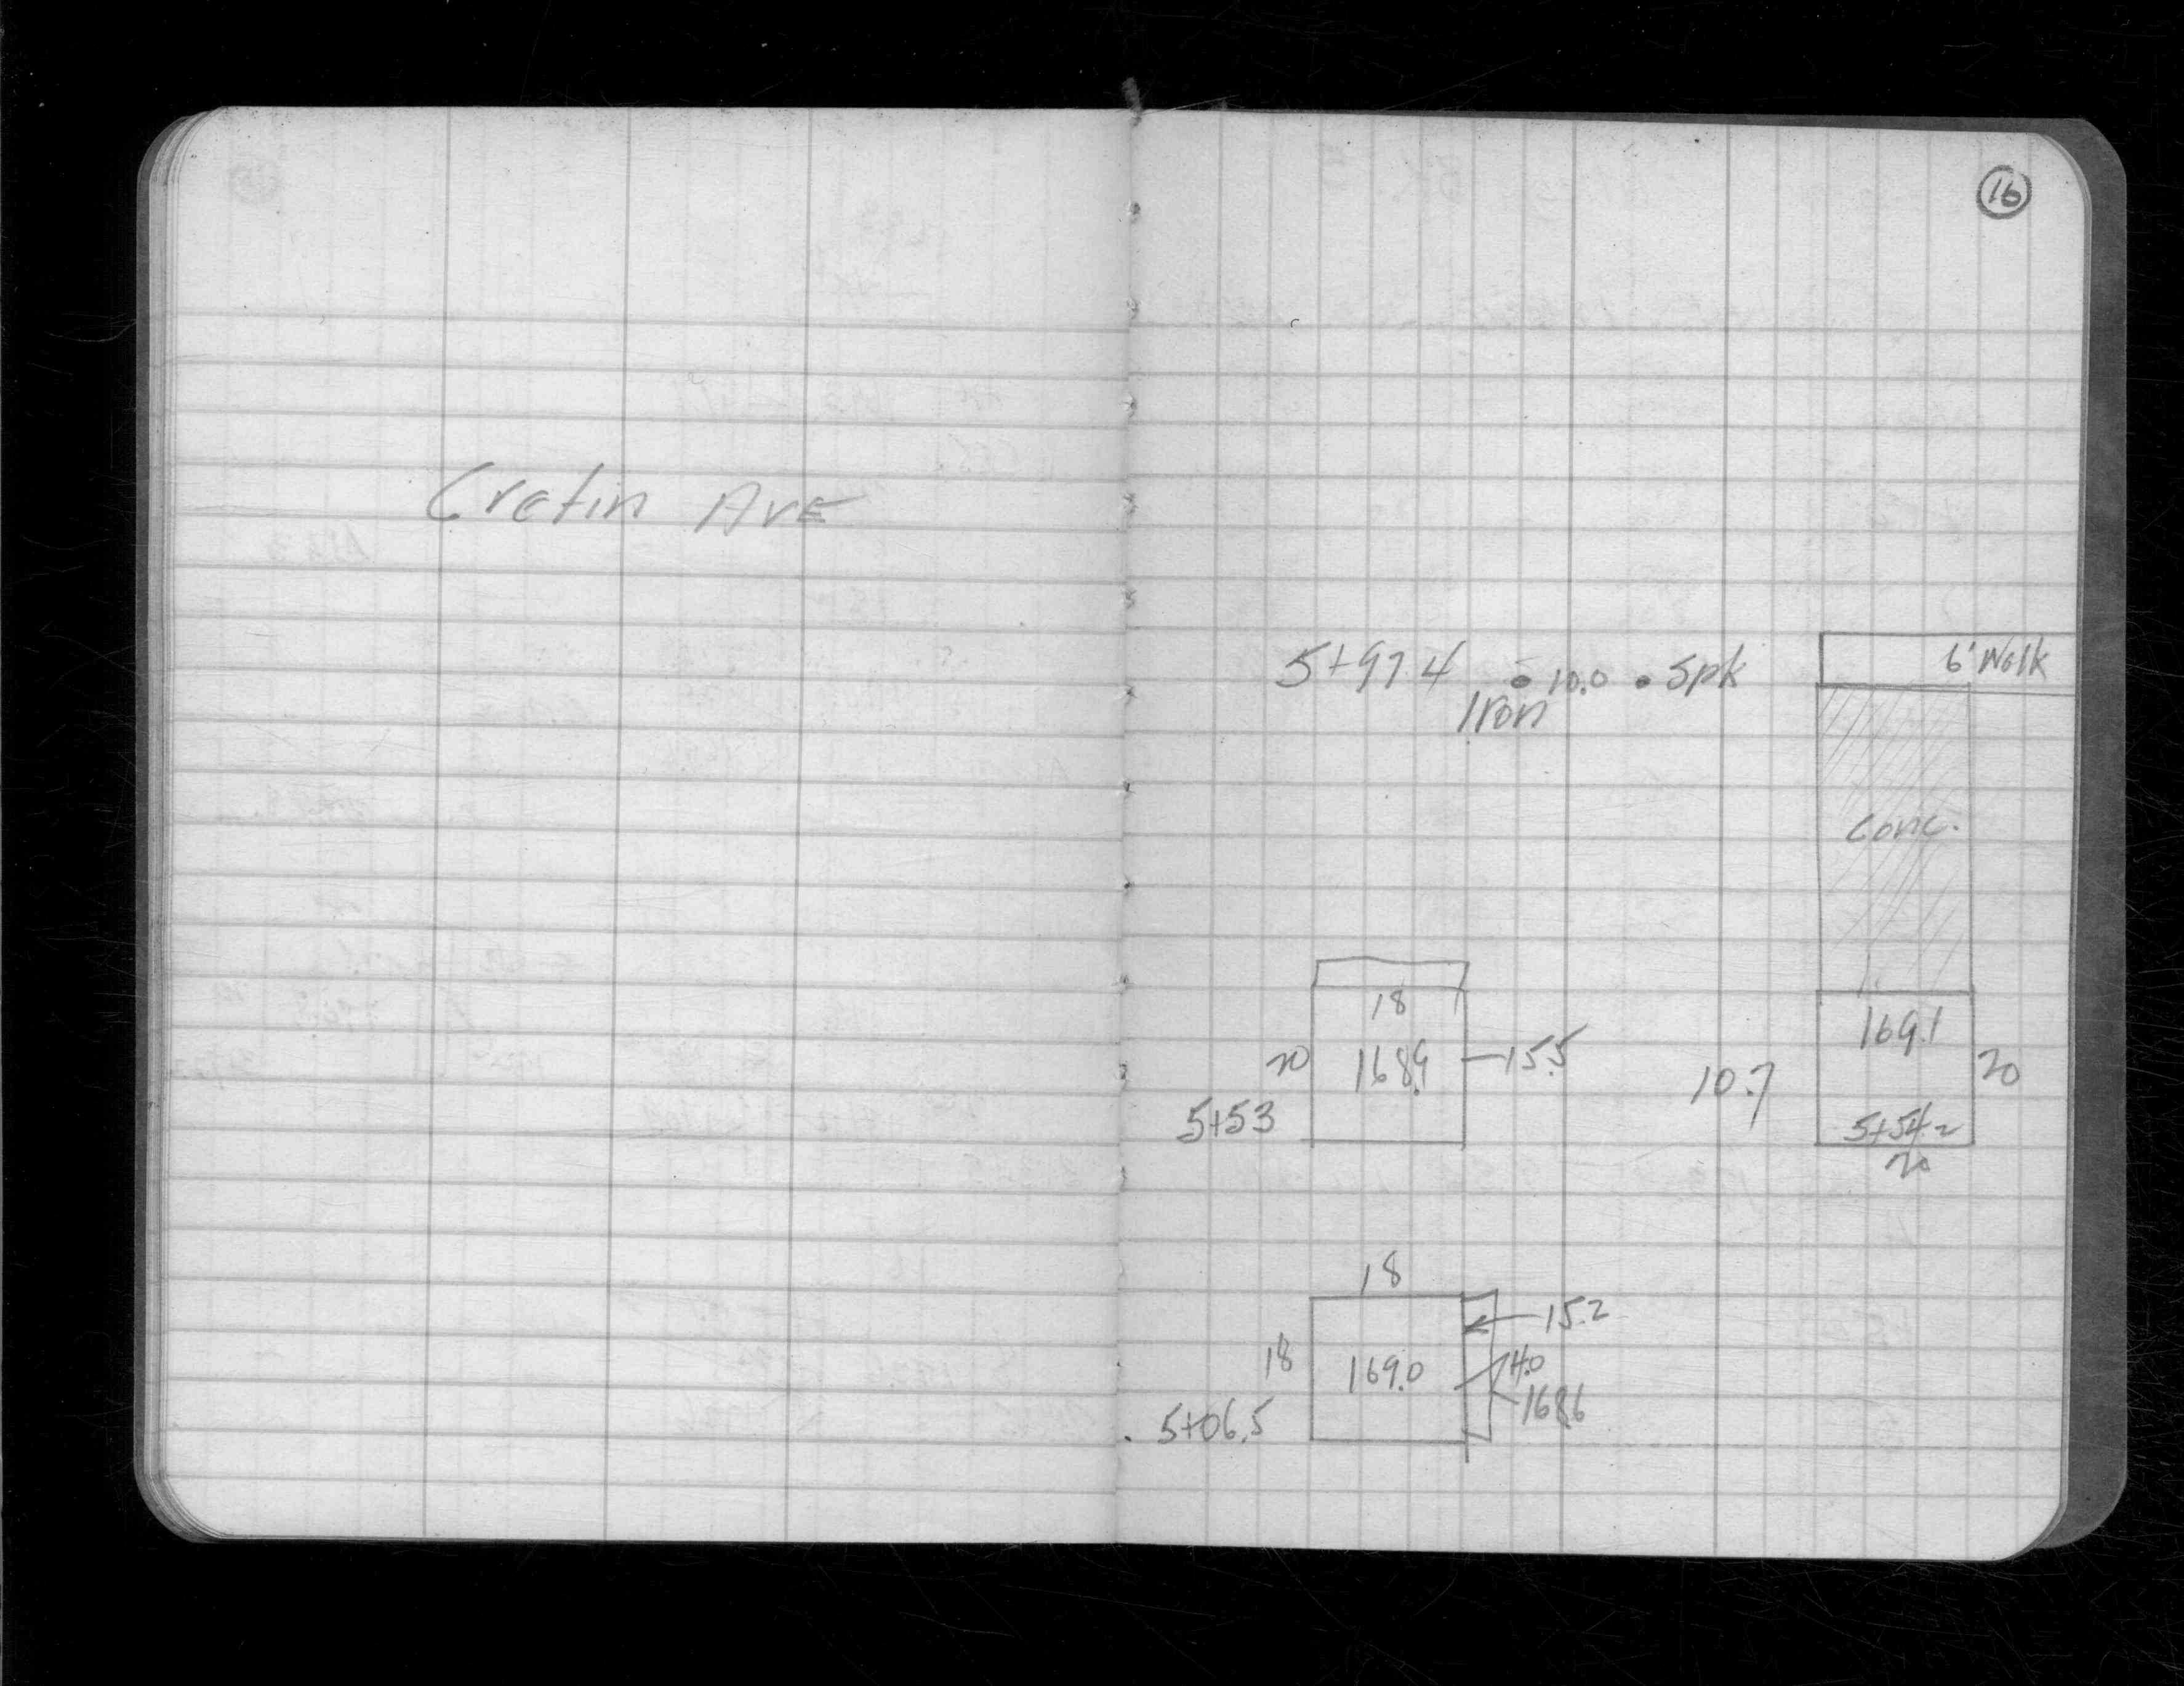 16
Cretin Ave
6' Walk
5+97.4 10.0 Spk
Iron
Conc.
18
169.1
20 168.9 15.5 20
10.7
5+53 5+54.2
20
18
15.2
18 169.0
168.6
5+06.5